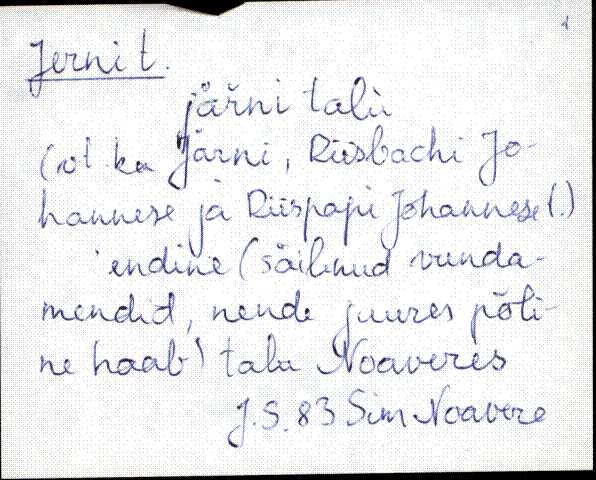 Jerni t.
järni talu
(vt. ka Järni, Riisbachi Jo-
hannese ja Riispapi Johannese (.)
endine (säilinud vunda-
mendid, nende juures põli-
ne haab) talu Noaveres
J.S. 83 Sim Noavere